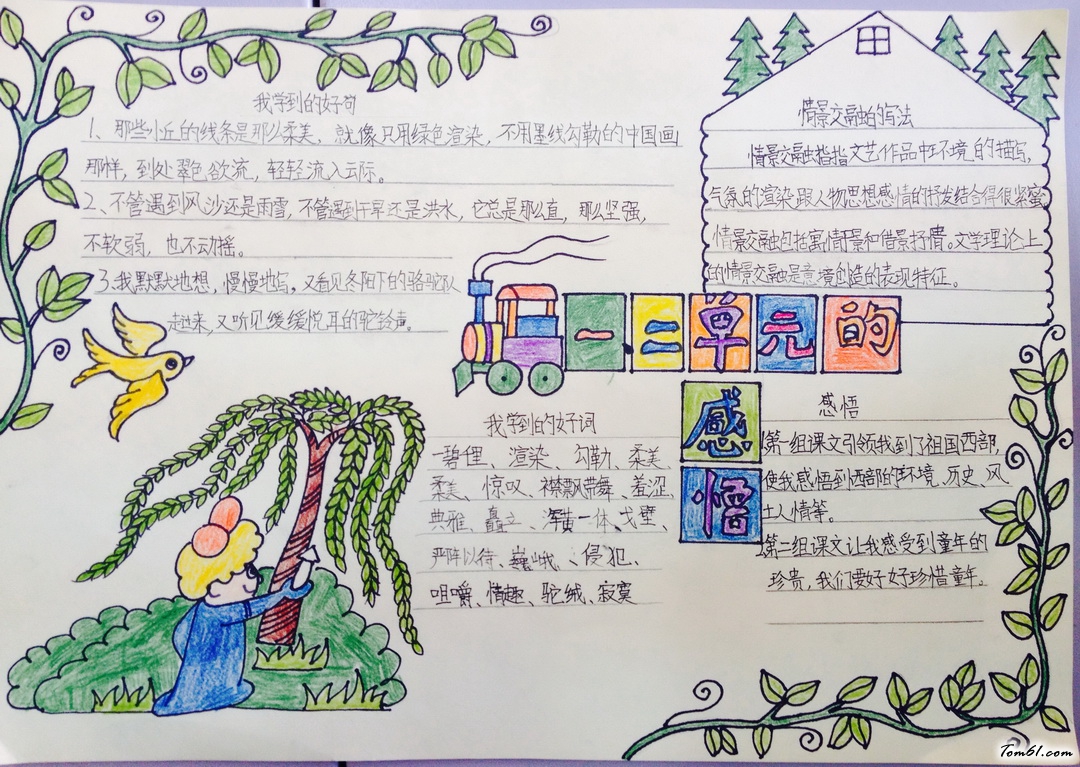 我学到的好句
1、那些小丘的线条是那么柔美，就像只用绿色渲染，不用墨线勾勒的中国画
那样，到处翠色欲流，轻轻流入云际。
2、不管遇到风沙还是雨雪，不管遇到干旱还是洪水，它总是那么直，那么坚强，
不软弱，也不动摇。
3、我默默地想，慢慢地写。又看见冬阳下的骆驼队
走过来，又听见缓缓悦耳的驼铃声。
情景交融的写法
情景交融指指文艺作品中环境的描写，
气氛的渲染跟人物思想感情的抒发结合得很紧蜜
情景交融包括寓情于景和借景抒情。文学理论上
的情景交融是意境创造的表现特征。
一、二单元的
感悟
我学到的好词
一碧俚、渲染、勾勒、柔美、
柔美、惊叹、襟飘带舞、羞涩、
典雅、矗立、浑黄一体、戈壁、
严阵以待、巍峨、侵犯、
咀嚼、情趣、驼绒、寂寞
感悟
第一组课文引领我到了祖国西部，
使我感悟到西部的环境、历史、风
土人情等。
第二组课文让我感受到童年的
珍贵，我们要好好珍惜童年。
Tom61.com